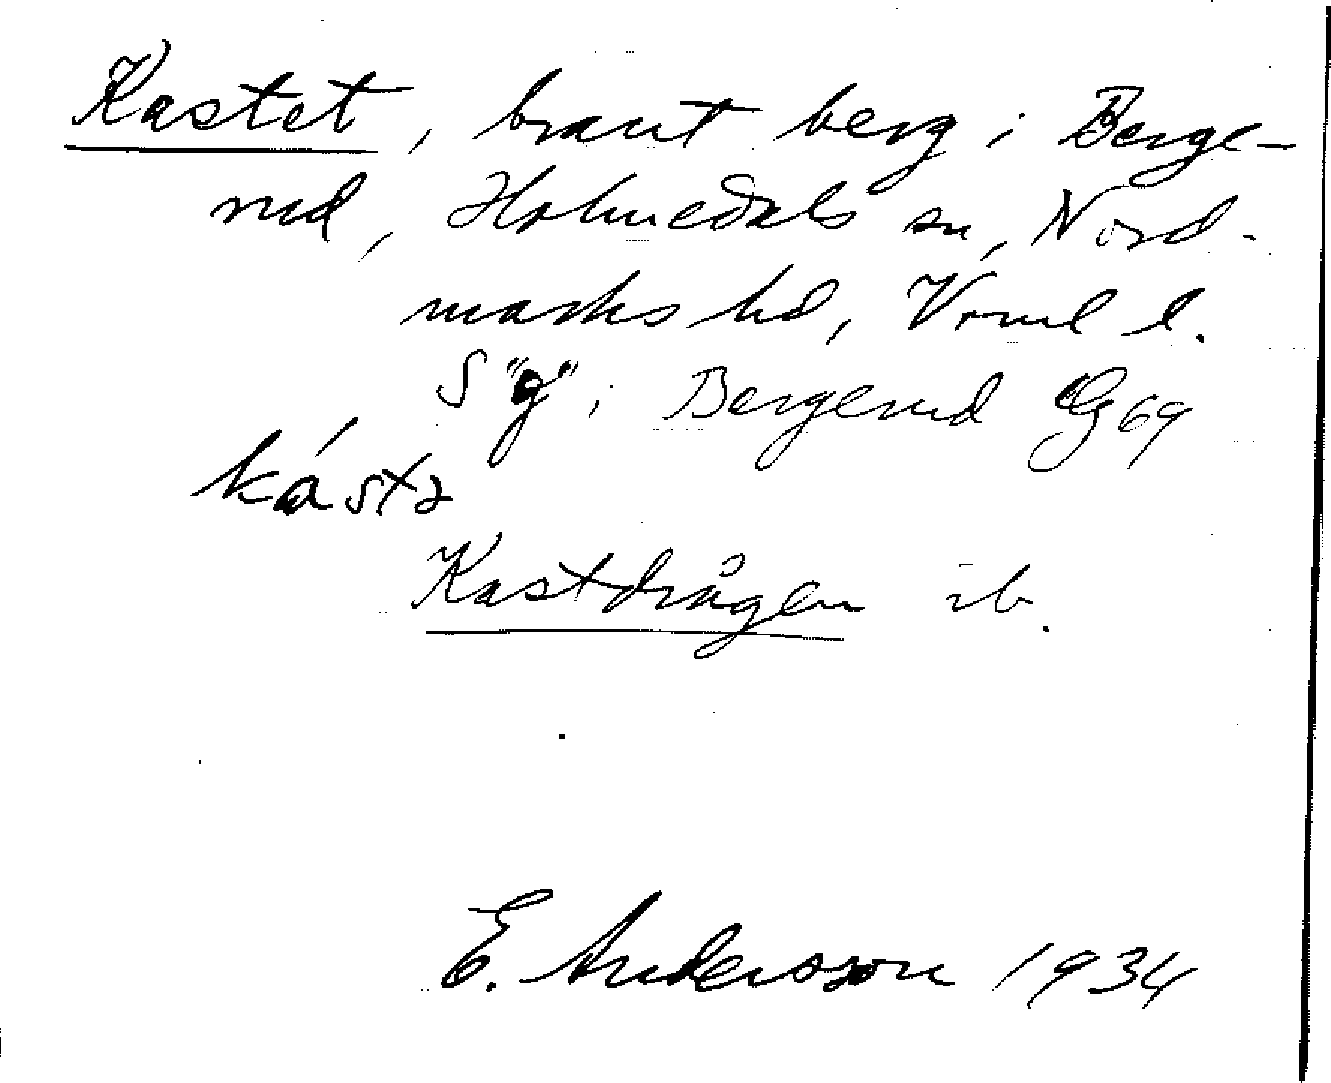 Kastet, brant berg i Berge-
rud, Holmedals sn, Nord-
marks hd, Vrml l.
S "g" i Bergerud G69
kástə
Kastdrågen ib.
E. Andersson 1934